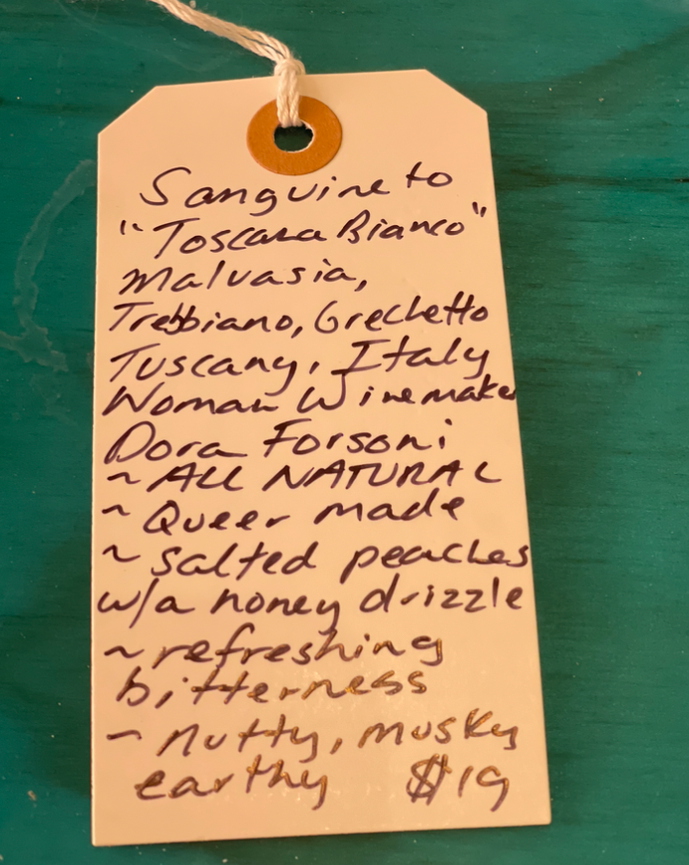 Sanguineto
"Toscana Bianco"
Malvasia,
Trebbiano, Grechetto
Tuscany, Italy
Woman Winemaker
Dora Forsoni
~ ALL NATURAL
~ Queer made
~ salted peaches
w/a honey drizzle
~ refreshing
bitterness
~ nutty, musky
earthy $19